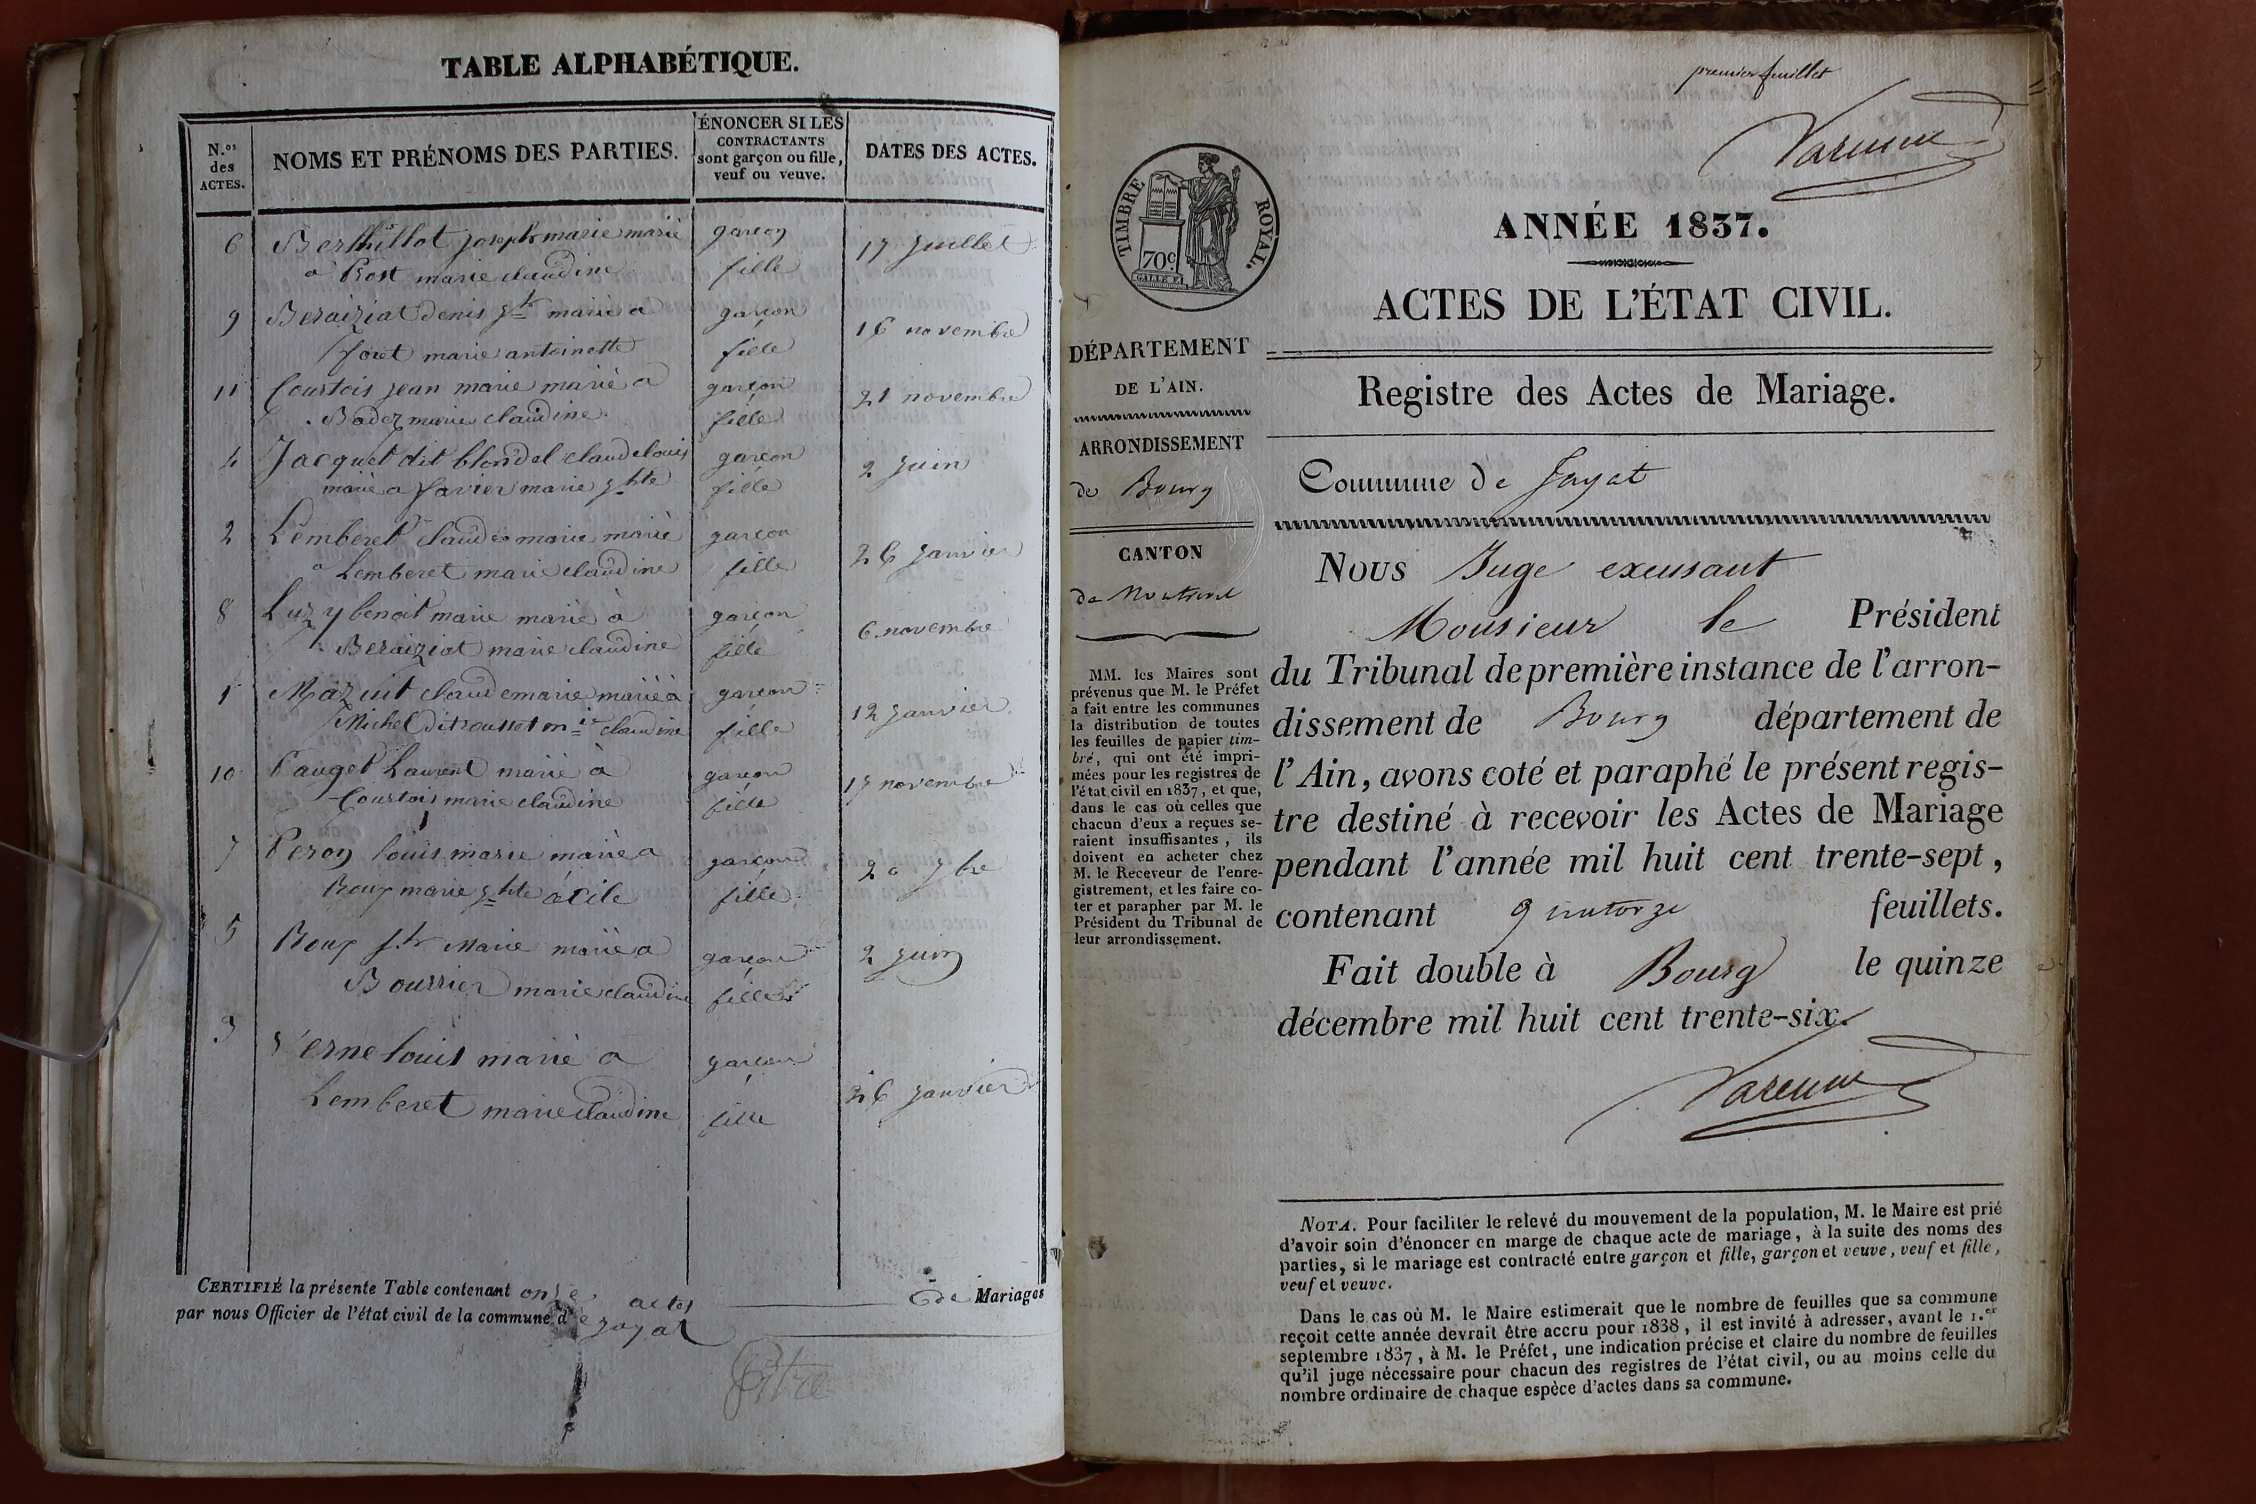 TABLE ALPHABÉTIQUE.
N.os des ACTES.
NOMS ET PRÉNOMS DES PARTIES.
ÉNONCER SI LES CONTRACTANTS sont garçon ou fille, veuf ou veuve.
DATES DES ACTES.
6 Berthillot joseph marie marié garçon 17 juillet
a Prost marie claudine fille
9 Beraiziat denis marié a garçon 16 novembre
foret marie antoinette fille
11 Courtois jean marie marié a garçon 21 novembre
Badez marie claudine fille
4 Jacquet dit blondel claude louis garçon 2 juin
marié a favier marie fille
2 Lemberet claude marie marié garçon 26 janvier
a Lemberet marie claudine fille
8 Luzy benoit marie marié à garçon 6 novembre
Beraiziat marie claudine fille
1 Mazuit claude marie marié à garçon 12 janvier
Michel dit rousset claudine fille
10 Pauget Laurent marié à garçon 17 novembre
Courtois marie claudine fille
7 Peron louis marie marié a garçon 20 7bre
Roux marie fille
5 Roux marie marié a garçon 2 juin
Bourrier marie claudine fille
3 Verne louis marié a garçon 26 janvier
Lemberet marie claudine fille
CERTIFIÉ la présente Table contenant onze actes de Mariages
par nous Officier de l'état civil de la commune de jayat
premier feuillet
Varenne
TIMBRE ROYAL.
70c.
GALLE F.
ANNÉE 1837.
ACTES DE L'ÉTAT CIVIL.
DÉPARTEMENT
DE L'AIN.
ARRONDISSEMENT
de Bourg
CANTON
de Montrevel
MM. les Maires sont
prévenus que M. le Préfet
a fait entre les communes
la distribution de toutes
les feuilles de papier tim-
bré, qui ont été impri-
mées pour les registres de
l'état civil en 1837, et que,
dans le cas où celles que
chacun d'eux a reçues se-
raient insuffisantes, ils
doivent en acheter chez
M. le Receveur de l'enre-
gistrement, et les faire co-
ter et parapher par M. le
Président du Tribunal de
leur arrondissement.
Registre des Actes de Mariage.
Commune de Jayat
Nous Juge excusant
Monsieur le Président
du Tribunal de première instance de l'arron-
dissement de Bourg département de
l'Ain, avons coté et paraphé le présent regis-
tre destiné à recevoir les Actes de Mariage
pendant l'année mil huit cent trente-sept,
contenant quatorze feuillets.
Fait double à Bourg le quinze
décembre mil huit cent trente-six.
Varenne
NOTA. Pour faciliter le relevé du mouvement de la population, M. le Maire est prié
d'avoir soin d'énoncer en marge de chaque acte de mariage, à la suite des noms des
parties, si le mariage est contracté entre garçon et fille, garçon et veuve, veuf et fille,
veuf et veuve.
Dans le cas où M. le Maire estimerait que le nombre de feuilles que sa commune
reçoit cette année devrait être accru pour 1838, il est invité à adresser, avant le 1.er
septembre 1837, à M. le Préfet, une indication précise et claire du nombre de feuilles
qu'il juge nécessaire pour chacun des registres de l'état civil, ou au moins celle du
nombre ordinaire de chaque espèce d'actes dans sa commune.